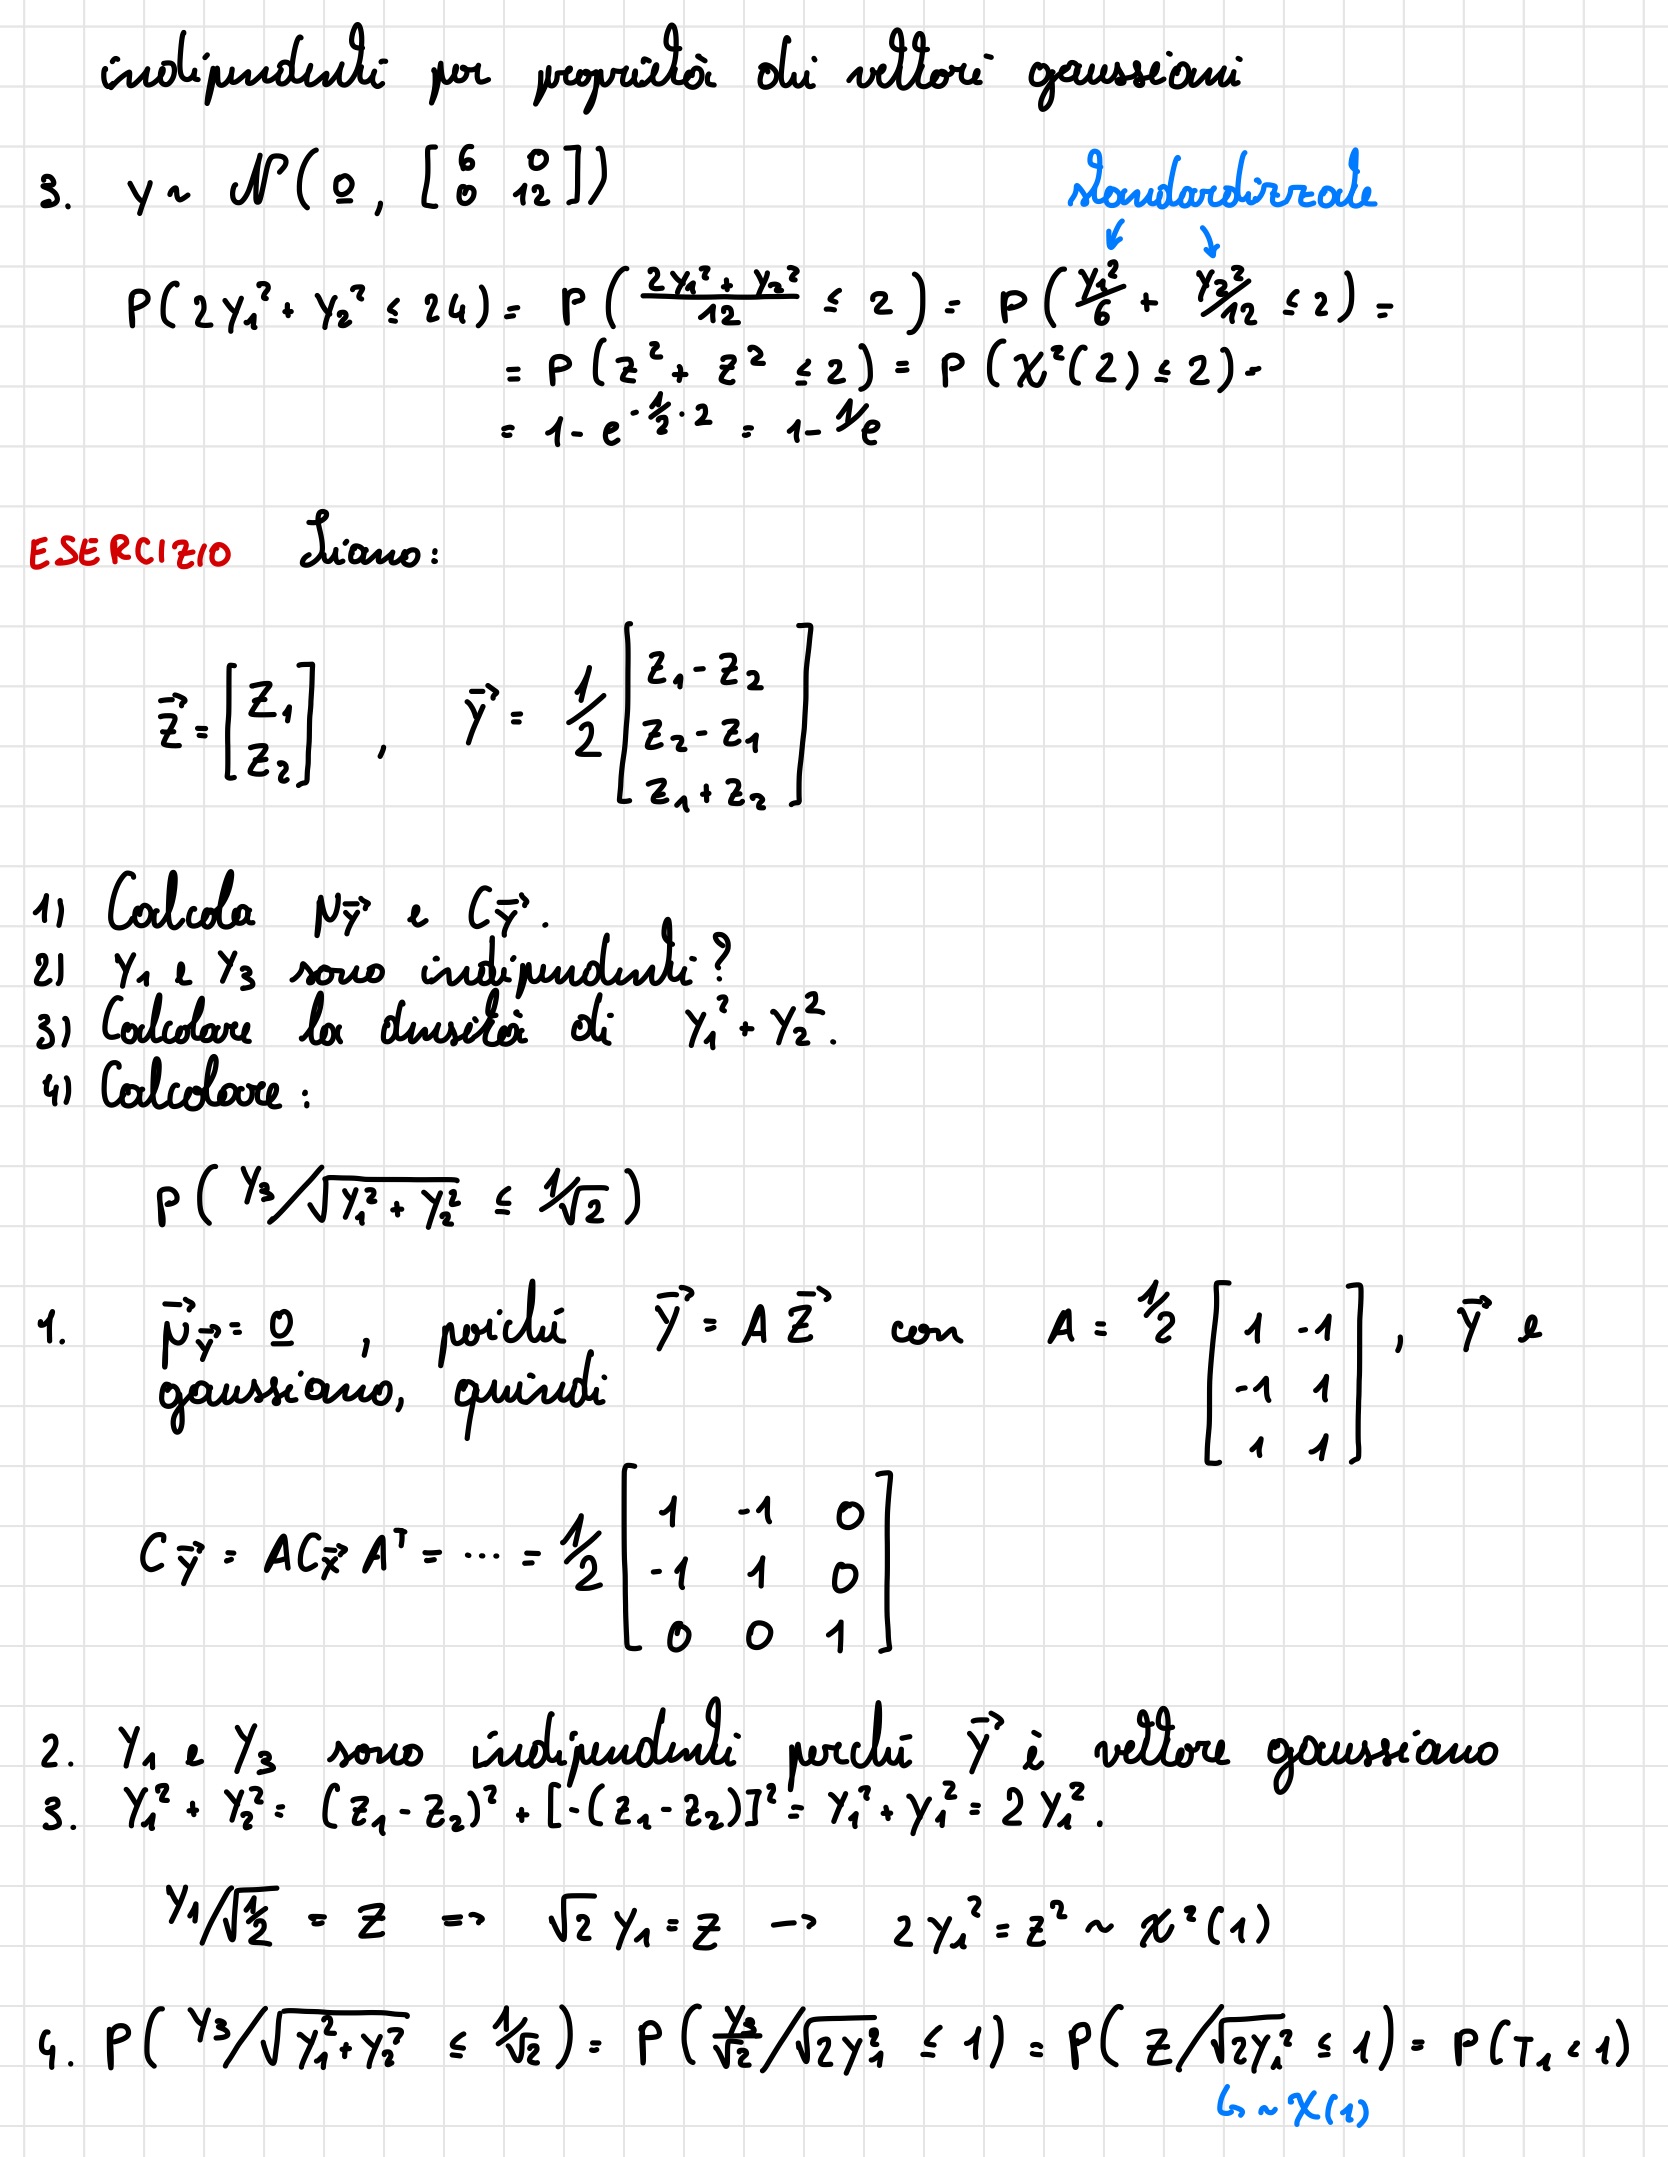 indipendenti per proprietà dei vettori gaussiani
3. Y ~ N(0, [6 0; 0 12])
standardizzate
P(2Y₁² + Y₂² ≤ 24) = P((2Y₁² + Y₂²)/12 ≤ 2) = P(Y₁²/6 + Y₂²/12 ≤ 2) =
= P(Z² + Z² ≤ 2) = P(χ²(2) ≤ 2) =
= 1 - e^(-1/2 · 2) = 1 - 1/e
ESERCIZIO Siano:
Z⃗ = [Z₁; Z₂] , Y⃗ = 1/2 [Z₁ - Z₂; Z₂ - Z₁; Z₁ + Z₂]
1) Calcola μ_Y⃗ e C_Y⃗.
2) Y₁ e Y₃ sono indipendenti?
3) Calcolare la densità di Y₁² + Y₂².
4) Calcolare:
P(Y₃/√(Y₁² + Y₂²) ≤ 1/√2)
1. μ⃗_Y⃗ = 0 , poiché Y⃗ = A Z⃗ con A = 1/2 [1 -1; -1 1; 1 1] , Y⃗ è
gaussiano, quindi
C_Y⃗ = A C_X⃗ Aᵀ = ... = 1/2 [1 -1 0; -1 1 0; 0 0 1]
2. Y₁ e Y₃ sono indipendenti perché Y⃗ è vettore gaussiano
3. Y₁² + Y₂² = (Z₁ - Z₂)² + [-(Z₁ - Z₂)]² = Y₁² + Y₁² = 2Y₁².
Y₁/√(1/2) = Z => √2 Y₁ = Z → 2Y₁² = Z² ~ χ²(1)
4. P(Y₃/√(Y₁² + Y₂²) ≤ 1/√2) = P((Y₃/√2)/√(2Y₁²) ≤ 1) = P(Z/√(2Y₁²) ≤ 1) = P(T₁ < 1)
↳ ~ χ(1)